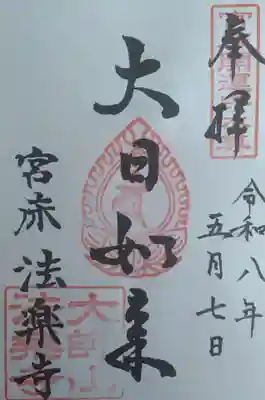 奉拝
令和八年
五月七日
大日如来
宮床法楽寺